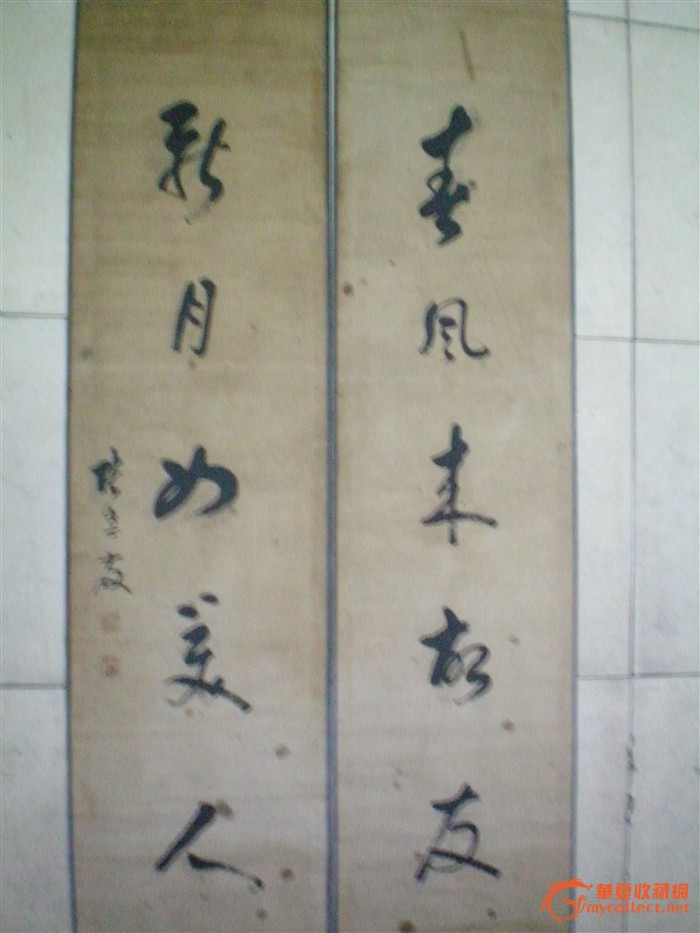 春風來故友
新月如美人
華夏收藏網
mycollect.net